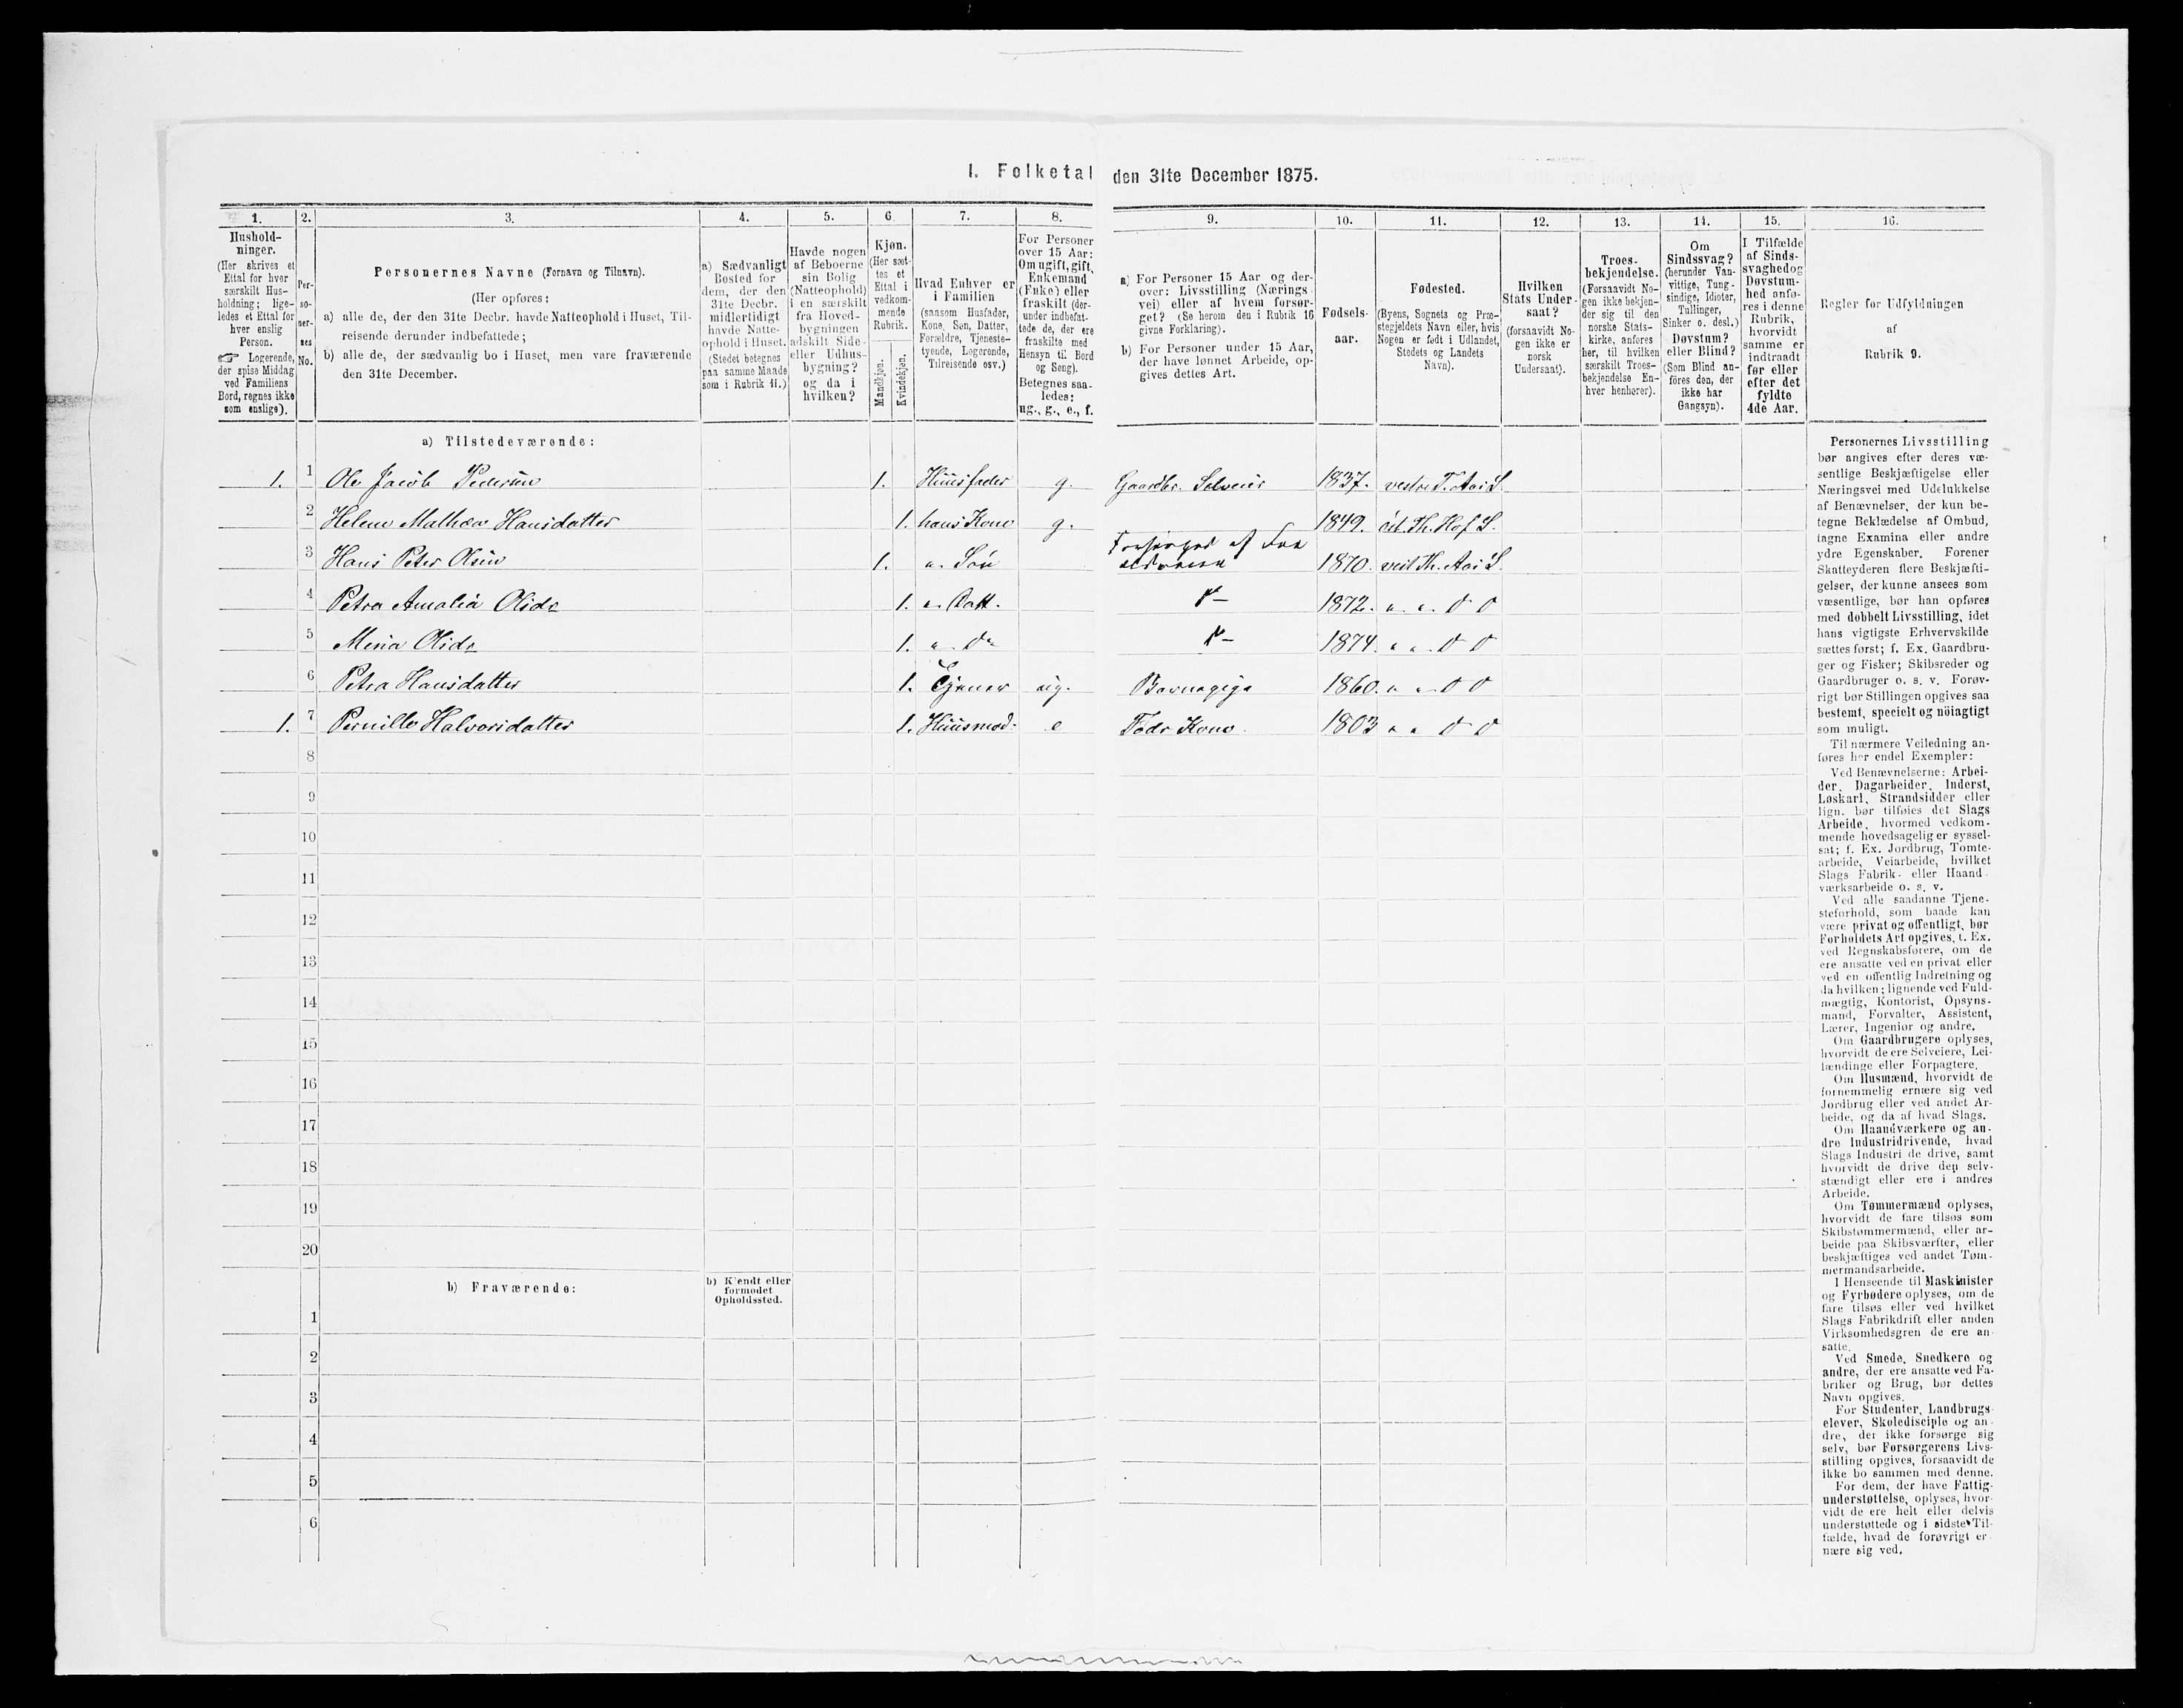 I. Folketal den 31te December 1875.
1.
Hushold-
ninger.
(Her skrives et
Ettal for hver
særskilt Hus-
holdning; lige-
ledes et Ettal for
hver enslig
Person.
☞ Logerende,
der spise Middag
ved Familiens
Bord, regnes ikke
som enslige).
2.
Per-
so-
ner-
nes
No.
3.
Personernes Navne (Fornavn og Tilnavn).
(Her opføres:
a) alle de, der den 31te Decbr. havde Natteophold i Huset, Til-
reisende derunder indbefattede;
b) alle de, der sædvanlig bo i Huset, men vare fraværende
den 31te December.
4.
a) Sædvanligt
Bosted for
dem, der den
31te Decbr.
midlertidigt
havde Natte-
ophold i Huset.
(Stedet betegnes
paa samme Maade
som i Rubrik 11.)
5.
Havde nogen
af Beboerne
sin Bolig
(Natteophold)
i en særskilt
fra Hoved-
bygningen
adskilt Side-
eller Udhus-
bygning?
og da i
hvilken?
6.
Kjøn.
(Her sæt-
tes et
Ettal i
vedkom-
mende
Rubrik.
Mandkjøn.
Kvindekjøn.
7.
Hvad Enhver er
i Familien
(saasom Husfader,
Kone, Søn, Datter,
Forældre, Tjeneste-
tyende, Logerende,
Tilreisende osv.)
8.
For Personer
over 15 Aar:
Om ugift, gift,
Enkemand
(Enke) eller
fraskilt (der-
under indbefat-
tede de, der ere
fraskilte med
Hensyn til Bord
og Seng).
Betegnes saa-
ledes:
ug., g., e., f.
9.
a) For Personer 15 Aar og der-
over: Livsstilling (Nærings-
vei) eller af hvem forsør-
get? (Se herom den i Rubrik 16
givne Forklaring).
b) For Personer under 15 Aar,
der have lønnet Arbeide, op-
gives dettes Art.
10.
Fødsels-
aar.
11.
Fødested.
(Byens, Sognets og Præ-
stegjeldets Navn eller, hvis
Nogen er født i Udlandet,
Stedets og Landets
Navn).
12.
Hvilken
Stats Under-
saat?
(forsaavidt No-
gen ikke er
norsk
Undersaat).
13.
Troes-
bekjendelse.
(Forsaavidt No-
gen ikke bekjen-
der sig til den
norske Stats-
kirke, anføres
her, til hvilken
særskilt Troes-
bekjendelse En-
hver henhører).
14.
Om
Sindssvag?
(herunder Van-
vittige, Tung-
sindige, Idioter,
Tullinger,
Sinker o. desl.)
Døvstum?
eller Blind?
(Som Blind an-
føres den, der
ikke har
Gangsyn).
15.
I Tilfælde
af Sinds-
svaghed og
Døvstum-
hed anfø-
res i denne
Rubrik,
hvorvidt
samme er
indtraadt
før eller
efter det
fyldte
4de Aar.
16.
Regler for Udfyldningen
af
Rubrik 9.
a) Tilstedeværende:
1. 1 Ole Jacob Pedersen 1. Huusfader g. Gaardbr. Selveier 1837. vestre T. Aas S.
2 Helene Mathea Hansdatter 1. hans Kone g. 1849. Hof S.
3 Hans Peter Olsen 1. " Søn Forsørged af For
ældrene 1870. vest Th. Aas S.
4 Petra Amalia Olsdr 1. " Datt. 1872. " " d d
5 Mina Olsdr 1. " d" 1874. " " d d
6 Petra Hansdatter 1. Tjener ug. Barnepige 1860. " " d d
1. 7 Pernille Halvorsdatter 1. Huusmod: e Føder Kone. 1803 " " d d
8
9
10
11
12
13
14
15
16
17
18
19
20
b) Fraværende:
b) Kjendt eller
formodet
Opholdssted.
1
2
3
4
5
6
Personernes Livsstilling
bør angives efter deres væ-
sentlige Beskjæftigelse eller
Næringsvei med Udelukkelse
af Benævnelser, der kun be-
tegne Beklædelse af Ombud,
tagne Examina eller andre
ydre Egenskaber. Forener
Skatteyderen flere Beskjæfti-
gelser, der kunne ansees som
væsentlige, bør han opføres
med dobbelt Livsstilling, idet
hans vigtigste Erhvervskilde
sættes først; f. Ex. Gaardbru-
ger og Fisker; Skibsreder og
Gaardbruger o. s. v. Forøv-
rigt bør Stillingen opgives saa
bestemt, specielt og nöiagtigt
som muligt.
Til nærmere Veiledning an-
føres her endel Exempler:
Ved Benævnelserne: Arbei-
der, Dagarbeider, Inderst,
Løskarl, Strandsidder eller
lign. bør tilføies det Slags
Arbeide, hvormed vedkom-
mende hovedsagelig er syssel-
sat; f. Ex. Jordbrug, Tomte-
arbeide, Veiarbeide, hvilket
Slags Fabrik- eller Haand-
værksarbeide o. s. v.
Ved alle saadanne Tjene-
steforhold, som baade kan
være privat og offentligt, bør
Forholdets Art opgives, t. Ex.
ved Regnskabsførere, om de
ere ansatte ved en privat eller
ved en offentlig Indretning og
da hvilken; lignende ved Fuld-
mægtig, Kontorist, Opsyns-
mand, Forvalter, Assistent,
Lærer, Ingeniør og andre.
Om Gaardbrugere oplyses,
hvorvidt de ere Selveiere, Lei-
lændinge eller Forpagtere.
Om Husmænd, hvorvidt de
fornemmelig ernære sig ved
Jordbrug eller ved andet Ar-
beide, og da af hvad Slags.
Om Haandværkere og an-
dre Industridrivende, hvad
Slags Industri de drive, samt
hvorvidt de drive den selv-
stændigt eller ere i andres
Arbeide.
Om Tømmermænd oplyses,
hvorvidt de fare tilsøs som
Skibstømmermænd, eller ar-
beide paa Skibsværfter, eller
beskjæftiges ved andet Tøm-
mermandsarbeide.
I Henseende til Maskinister
og Fyrbødere oplyses, om de
fare tilsøs eller ved hvilket
Slags Fabrikdrift eller anden
Virksomhedsgren de ere an-
satte.
Ved Smede, Snedkere og
andre, der ere ansatte ved Fa-
briker og Brug, bør dettes
Navn opgives.
For Studenter, Landbrugs-
elever, Skoledisciple og an-
dre, der ikke forsørge sig
selv, bør Forsørgerens Livs-
stilling opgives, forsaavidt de
ikke bo sammen med denne.
For dem, der have Fattig-
understøttelse, oplyses, hvor-
vidt de ere helt eller delvis
understøttede og i sidste Til-
fælde, hvad de forøvrigt er-
nære sig ved.